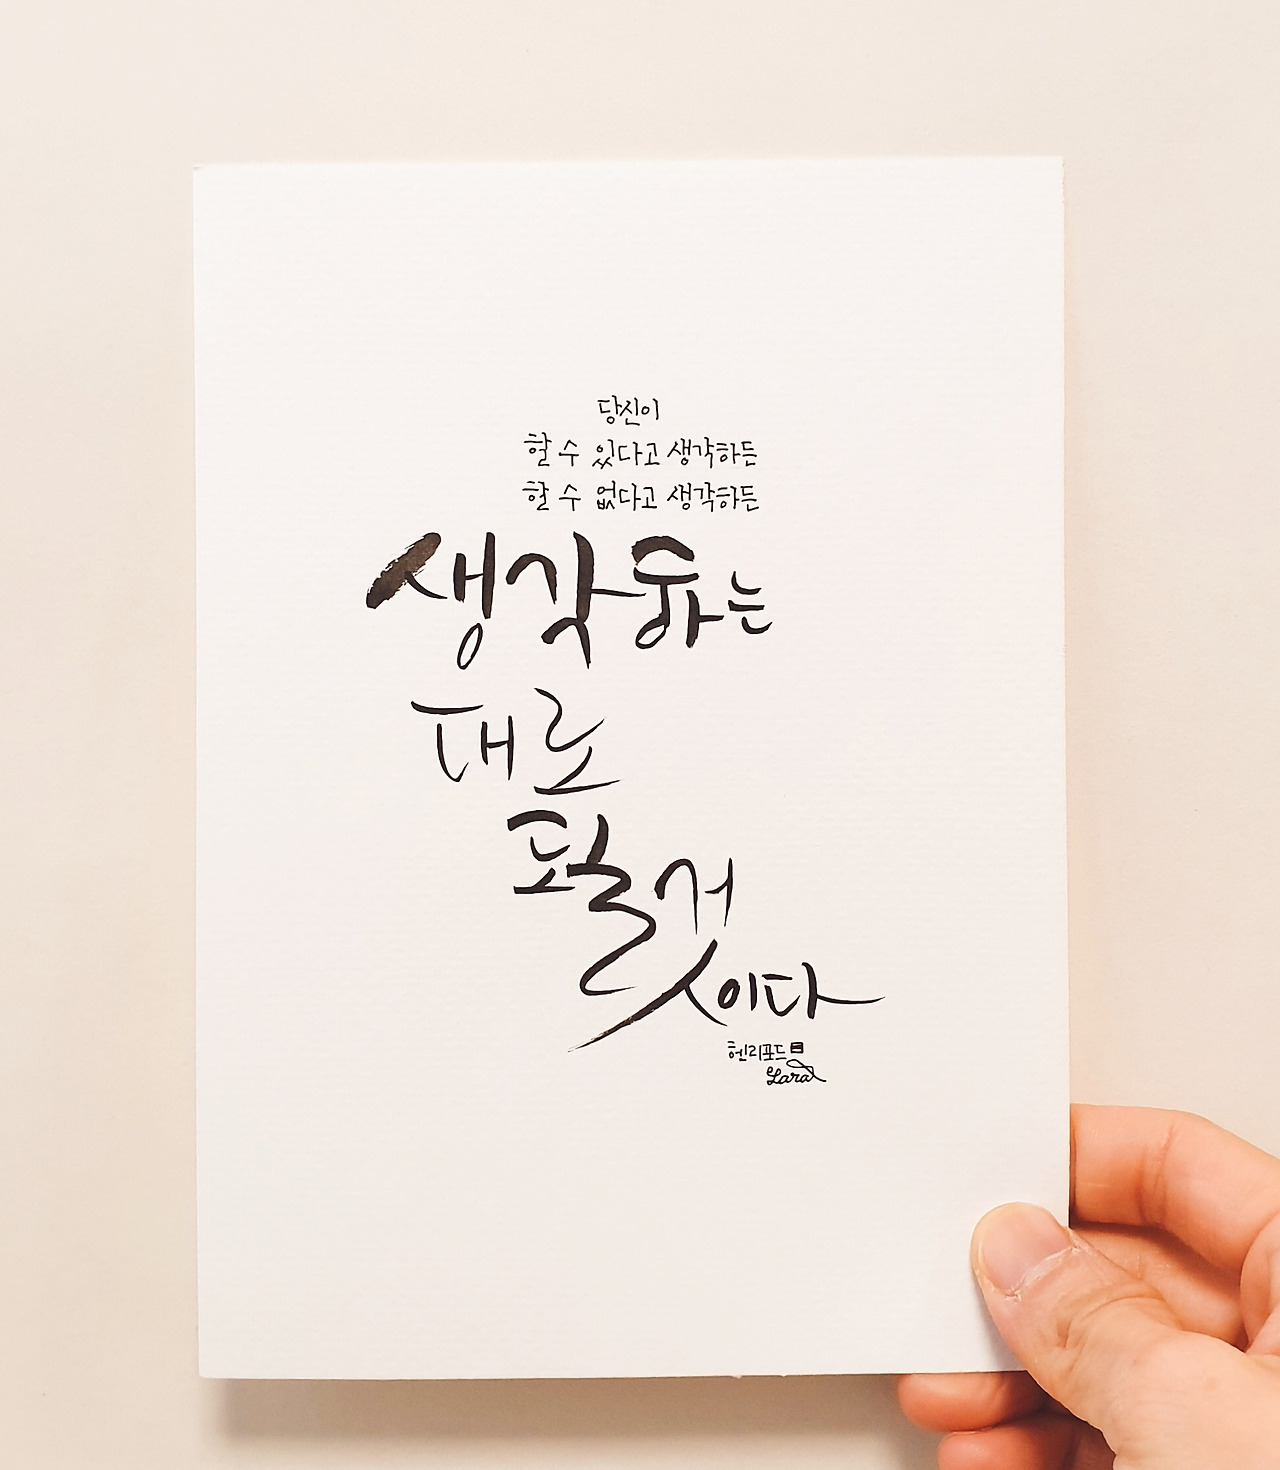 당신이
할 수 있다고 생각하든
할 수 없다고 생각하든
생각하는
대로
될 것
이다
헨리포드
Lara